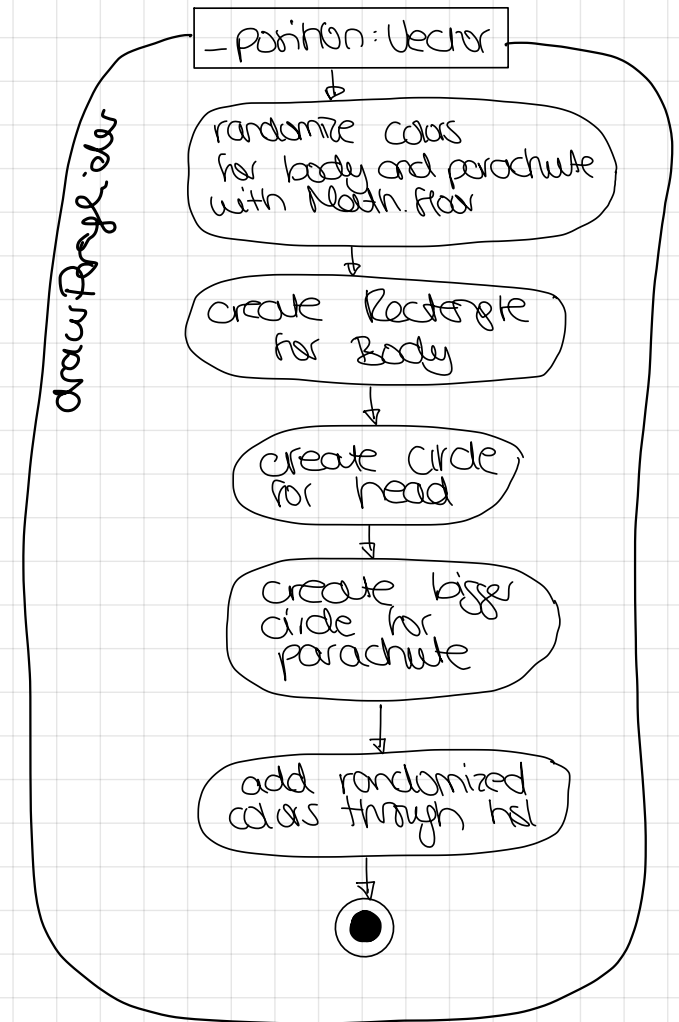 _position: Vector
drawParaglider
randomize colors
for body and parachute
with Math.floor
create Rectangle
for Body
create circle
for head
create bigger
circle for
parachute
add randomized
colors through hsl